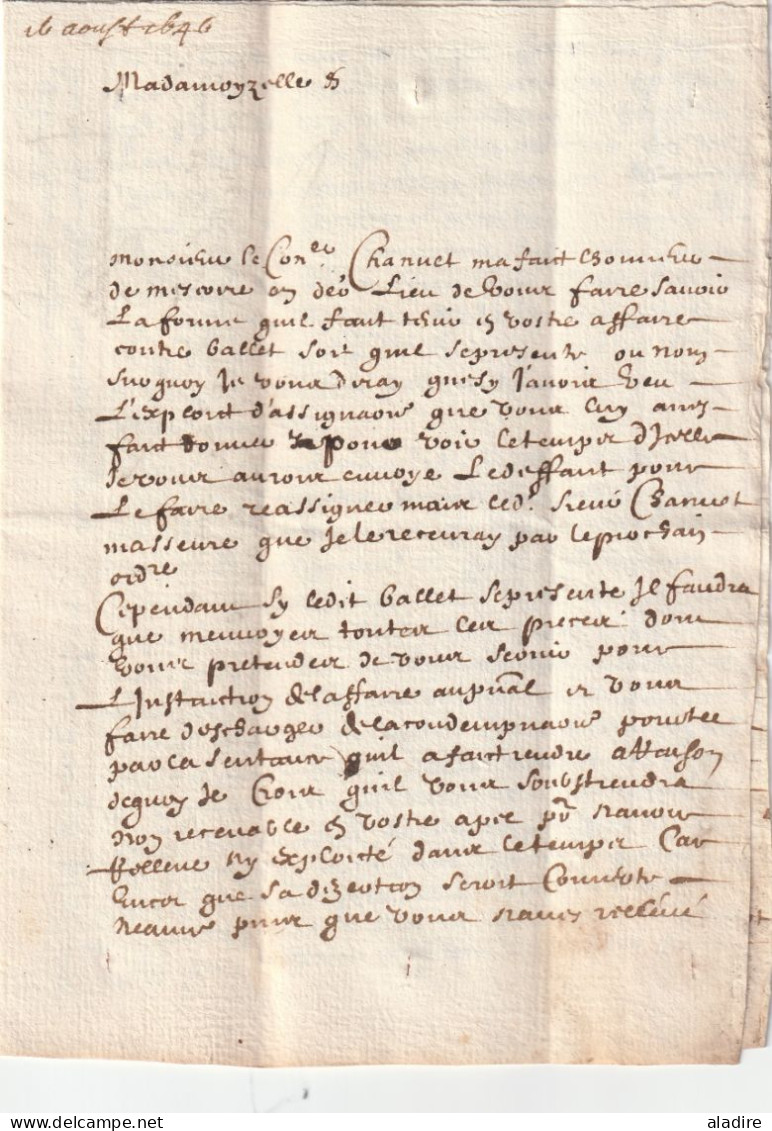 16 aoust 1646
Madamoyzelle
monsieur le Con.er Chanuet ma faict lhonneur
de mescrire en deo Lieu de vous faire savoir
La forme quil faut tenir en vostre affaire
contre ballet soit quil se presente ou non
suoquoy Je vous diray que sy J'avois veu
L'exploict d'assignaon que vous luy aves
faict donner pour voir le temps dicelle
Je vous aurois envoye Le deffaut pour
Le faire reassigner mais led. sieur Chanuet
masseure que Je le recevray par le prochain
ordre
Cependant sy ledit ballet se presente Il faudra
que menvoyes toutes les pieces dont
vous pretendes de vous servir pour
L'Instruction de laffaire au pnal et vous
faire descharger de la condempnaon portee
par la sentance quil a faict rendre
dequoy Je Crois quil vous soubstiendra
non recevable en vostre apel pr navoir
Relleve ny exploicté dans le temps Car
Encor que sa dizertion seroit Couverte
neanms pour que vous naves rellevé
aladire
www.delcampe.net